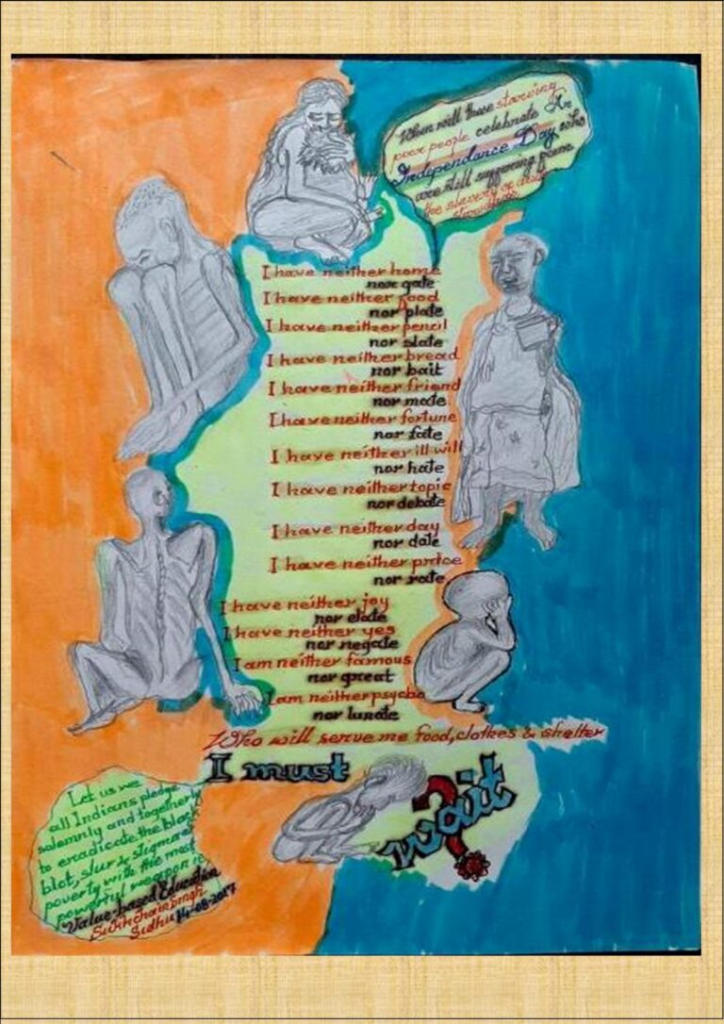 When will these starving
poor people celebrate An
Independance Day who
are still
the slavery of
I have neither home
nor gate
I have neither food
nor plate
I have neither pencil
nor slate
I have neither bread
nor bait
I have neither friend
nor mate
I have neither fortune
nor fate
I have neither ill will
nor hate
I have neither topic
nor debate
I have neither day
nor date
I have neither price
nor rate
I have neither joy
nor elate
I have neither yes
nor negate
I am neither famous
nor great
I am neither psycho
nor lunate
Who will serve me food, clothes & shelter
I must
wait ?
Let us we
all Indians pledge
solemnly and together
to eradicate the black
blot, slur & stigma of
poverty with the most
powerful weapon is
Value-based Education
Sukhchain Singh
Sidhu 14-08-2017